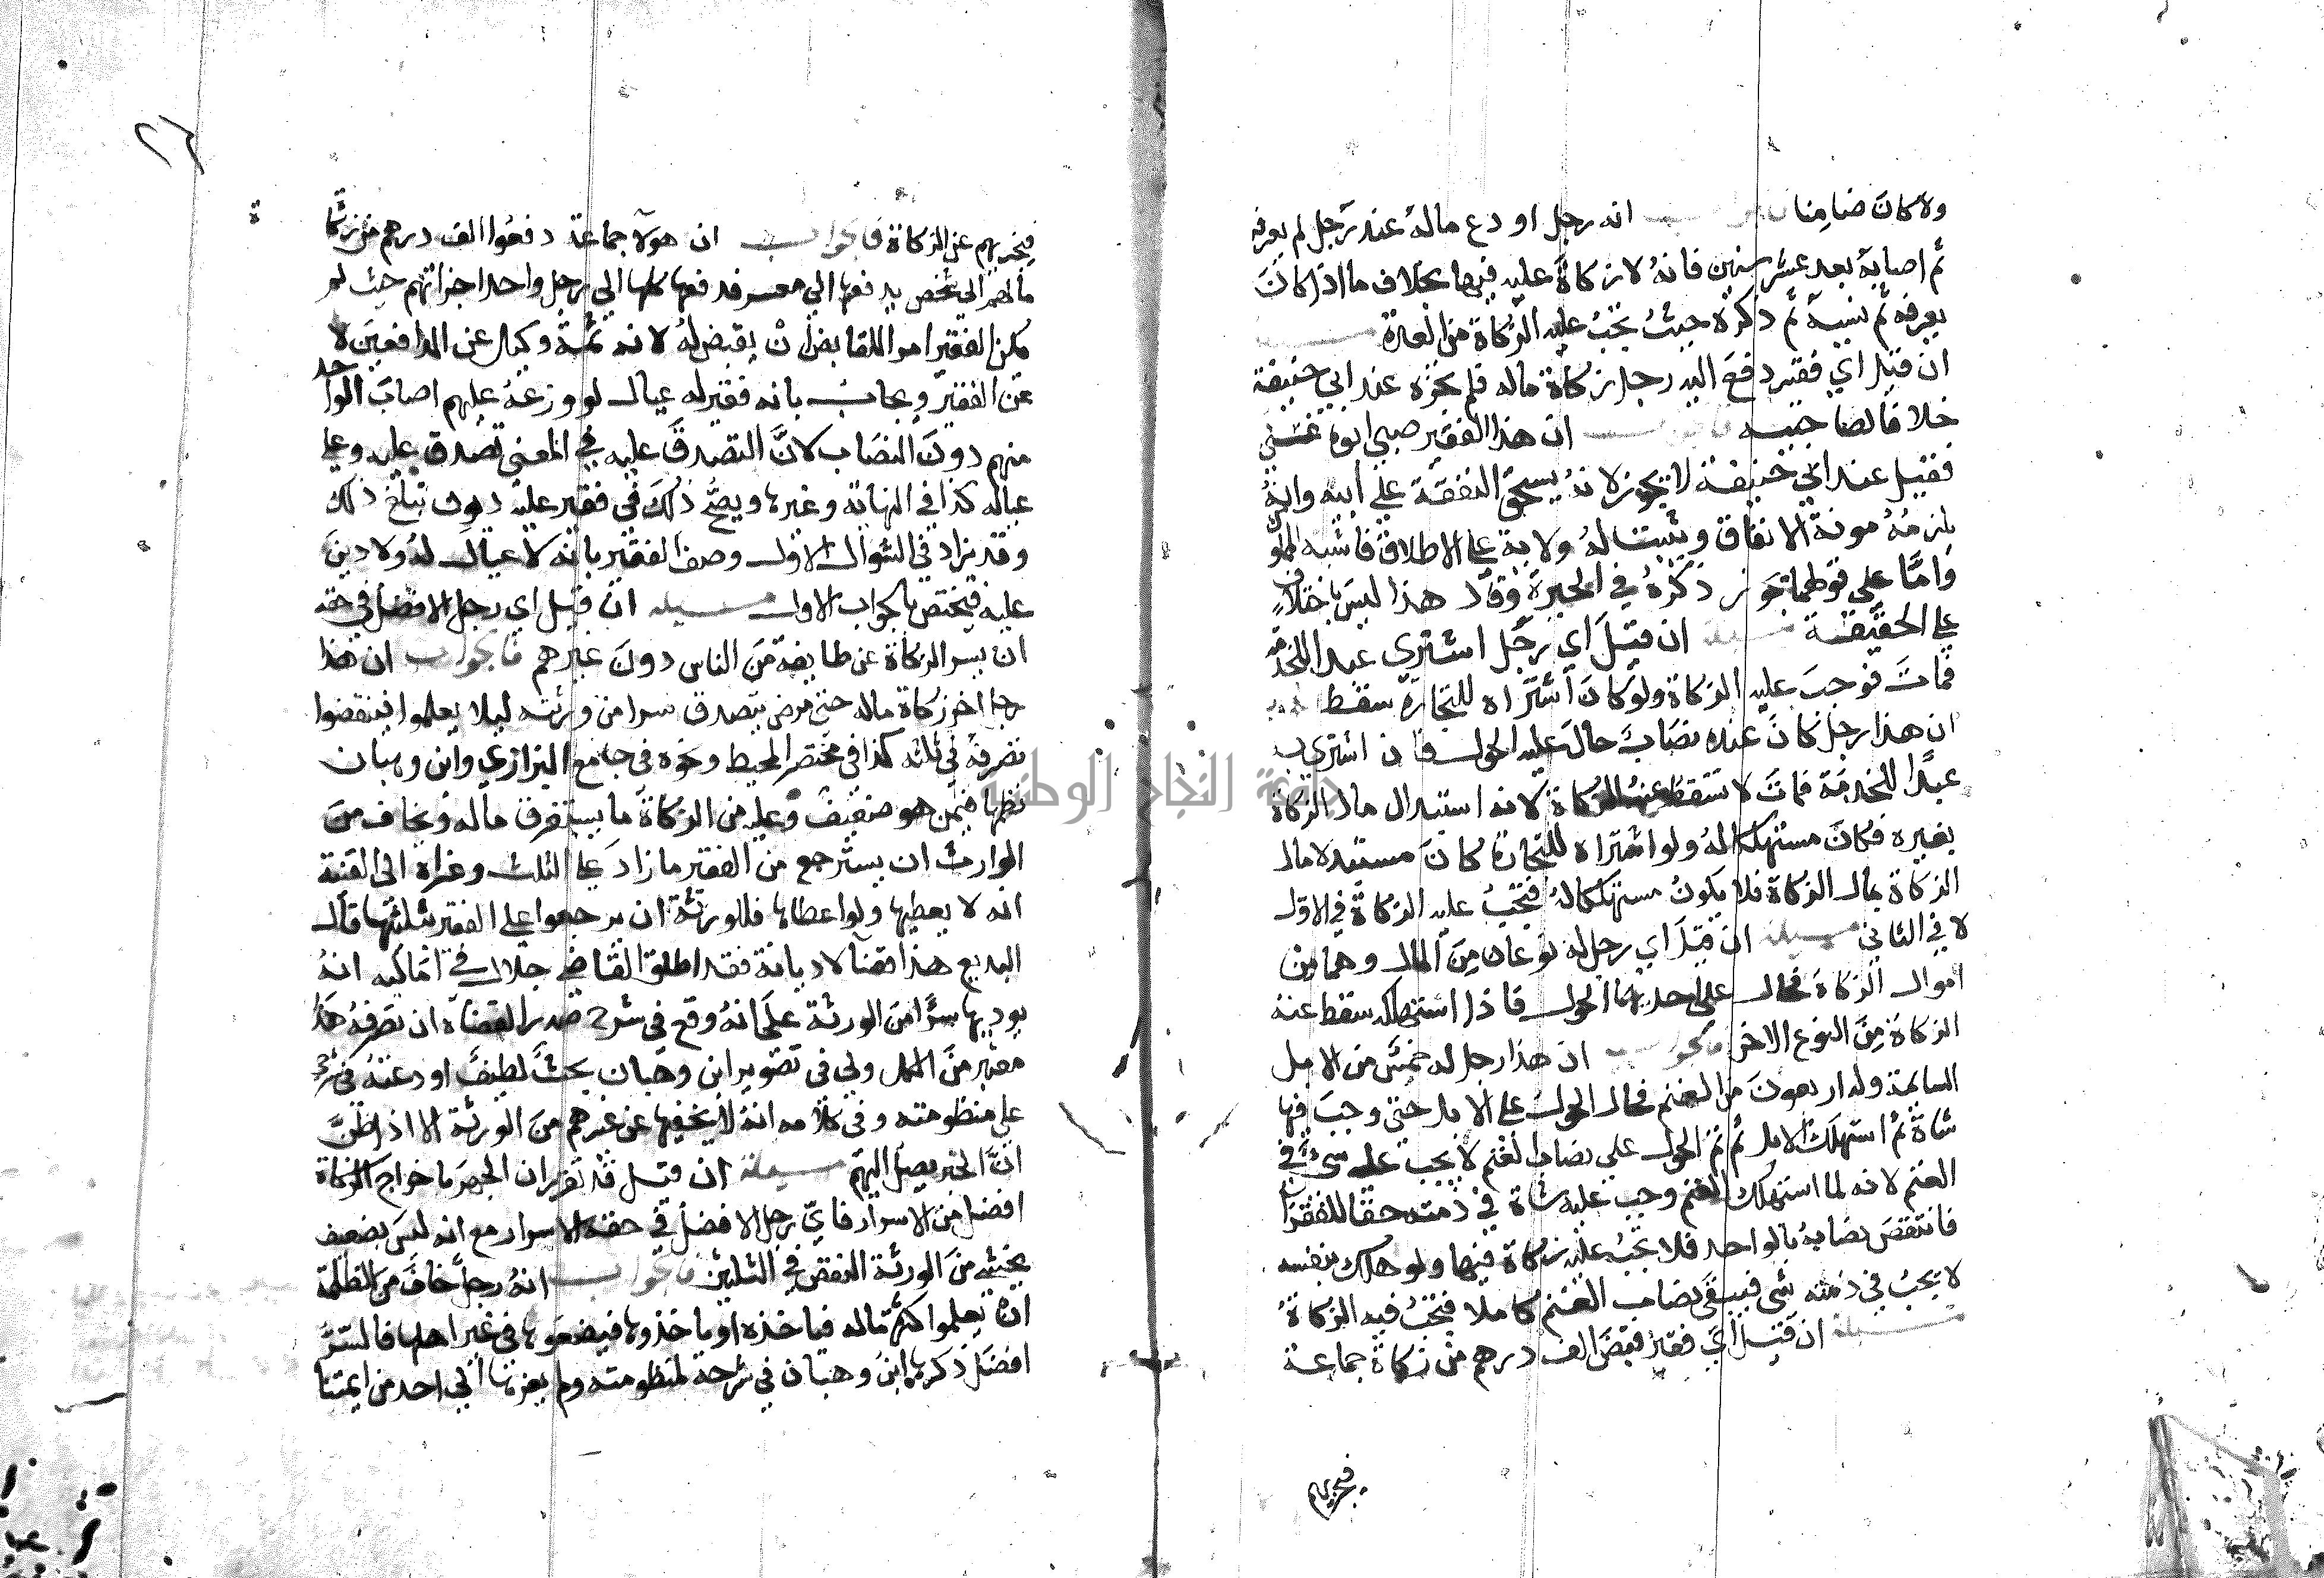 ولا كان ضامنا فالجواب انه رجل اودع ماله عند رجل لم يعرفه
ثم اصابه بعد عشر سنين فانه لا زكاة عليه فيها بخلاف ما اذا كان
يعرفه ثم نسيه ثم ذكره حيث تجب عليه الزكاة من العدة مسيلة
ان قيل اي فقير دفع اليه رجل زكاة ماله فلم يجزه عند ابي حنيفة
خلافا لصاحبيه فالجواب ان هذا الفقير صبي ابوه غني
فقيل عند ابي حنيفة لا يجوز لانه يستحق النفقة على ابيه وانه
يلزمه مونة الانفاق ويثبت له ولاية على الاطلاق فاشبه المملوك
واما على قولهما تجوز ذكره في الحيرة وقال هذا ليس باختلاف
على الحقيقة مسيلة ان قيل اي رجل اشتري عبدا للخدمة
فمات فوجب عليه الزكاة ولو كان اشتراه للتجارة سقط فالجواب
ان هذا رجل كان عنده نصاب حال عليه الحول فان اشتري به
عبدا للخدمة فمات لا تسقط عنه الزكاة لانه استبدال مال الزكاة
بغيره فكان مستهلكا له ولو اشتراه للتجارة كان مستبدلا مال
الزكاة بمال الزكاة فلا يكون مستهلكا له فتجب عليه الزكاة في الاول
لا في الثاني مسيلة ان قيل اي رجل له نوعان من المال وهما من
اموال الزكاة فحال على احدهما الحول فاذا استهلكه سقط عنه
الزكاة من النوع الاخر فالجواب ان هذا رجل له خمس من الابل
السايمة وله اربعون من الغنم فحال الحول على الابل حتى وجب فيها
شاة ثم استهلك الابل ثم تم الحول على نصاب الغنم لا يجب عليه شي في
الغنم لانه لما استهلك الغنم وجب عليه شاة في ذمته حقا للفقرا
فانتقص نصابه بالواحد فلا تجب عليه زكاة فيها ولو هلك بنفسه
لا يجب في ذمته شي فيبقى نصاب الغنم كاملا فتجب فيه الزكاة
مسيلة ان قيل اي فقير قبض الف درهم من زكاة جماعة
فيجزيهم
فيجزيهم عن الزكاة فالجواب ان هولآ جماعة دفعوا الف درهم من زكاة
مالهم الي شخص يدفعها الي معسر فدفعها كلها الي رجل واحد اجزاتهم حيث لم
يكن الفقير امر القابض ان يقبض له لانه ثمة وكيل عن الدافعين لا
عن الفقير ويجاب بانه فقير له عيال لو وزعه عليهم اصاب الواحد
منهم دون النصاب لان التصدق عليه في المعنى تصدق عليه وعلى
عياله كذا في النهاية وغيرها ويصح ذلك في فقير عليه ديون تبلغ ذلك
وقد يزاد في السوال الاول وصف الفقير بانه لا عيال له ولا دين
عليه فيختص بالجواب الاول مسيلة ان قيل اي رجل الافضل في حقه
ان يسر الزكاة عن طايفة من الناس دون غيرهم فالجواب ان هذا
رجل اخر زكاة ماله حتى مرض يتصدق سرا من ورثته ليلا يعلموا فينقضوا
تصرفه في ثلثه كذا في مختصر المحيط ونحوه في جامع البزازي وابن وهبان
نظمها فيمن هو ضعيف وعليه من الزكاة ما يستغرق ماله ويخاف من
الوارث ان يسترجع من الفقير ما زاد على الثلث وعزاه الى القنية
انه لا يعطيها ولو اعطاها فللورثة ان يرجعوا على الفقير بثلثيها قال
البديع هذا قضآ لا ديانة فقد اطلق القاضي جلال في اماليه انه
يوديها سرا من الورثة على انه وقع في شرح صدر القضاة ان تصرفه هذا
معتبر من الكل ولي في تصوير ابن وهبان بحث لطيف اودعته في شرحي
على منظومته وفي كلامه انه لا يخفيها عن غيرهم من الورثة الا اذا ظن
ان الخبر يصل اليهم مسيلة ان قيل قد تقرر ان الجهر باخراج الزكاة
افضل من الاسرار فاي رجل الافضل في حقه الاسرار مع انه ليس بضعيف
يخشي من الورثة النقض في الثلثين فالجواب انه رجل خاف من الظلمة
ان يعلموا كثرة ماله فياخذه او ياخذوها فيضعوها في غير اهلها فالسر
افضل ذكرها ابن وهبان في شرحه لمنظومته ولم يعزها الي احد من ايمتنا